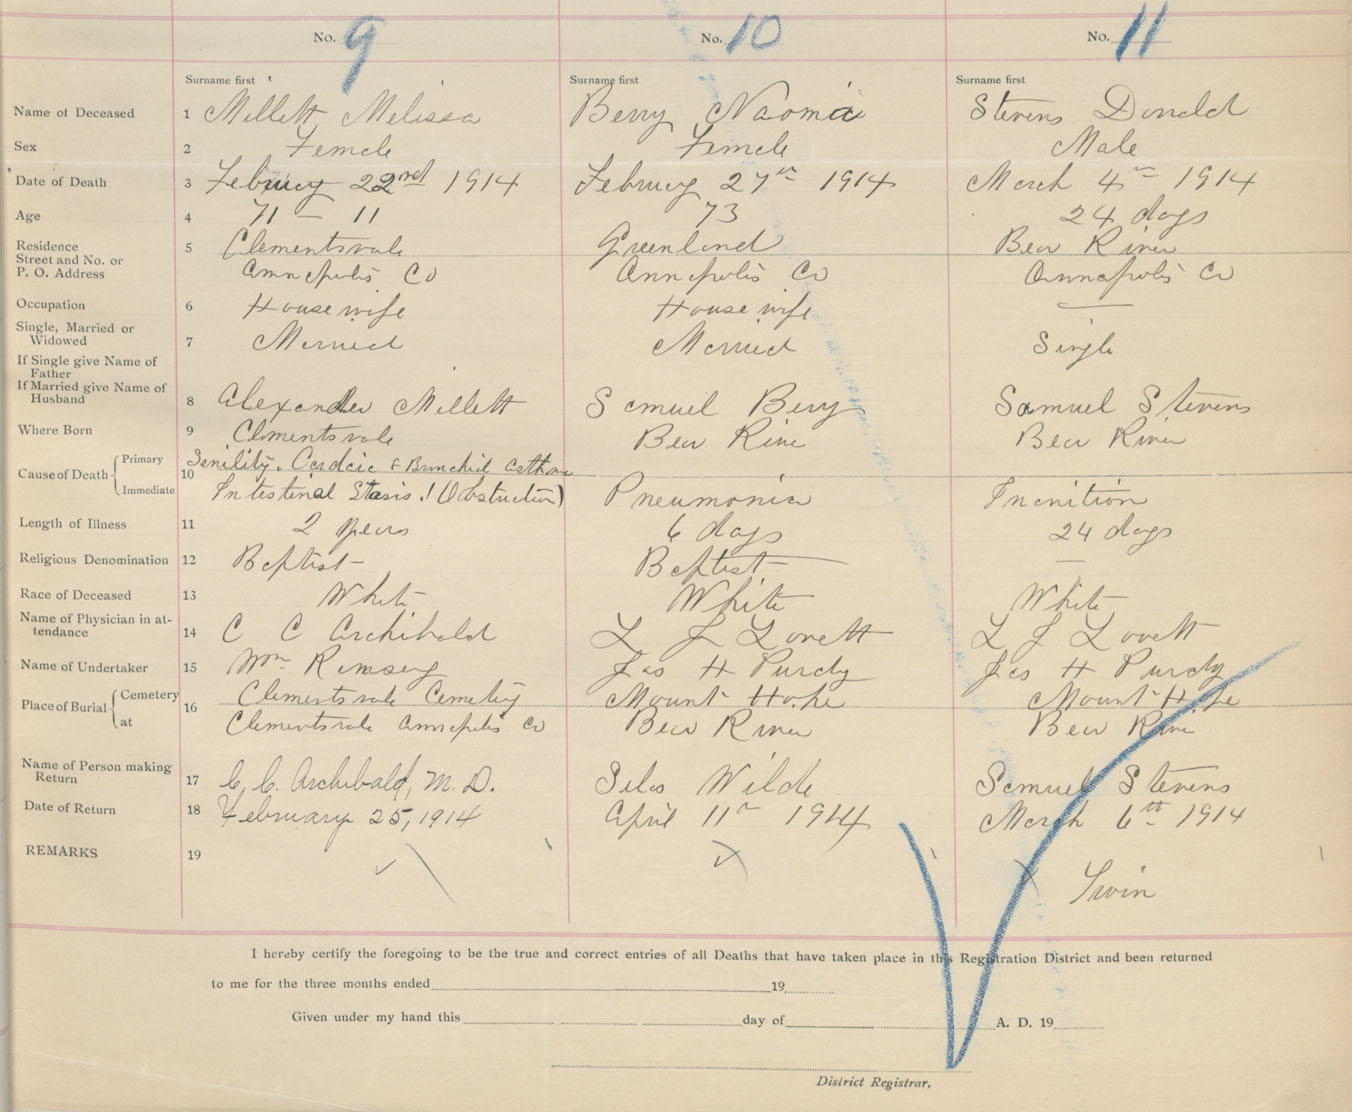 No. 9 No. 10 No. 11
Surname first Surname first Surname first
Name of Deceased 1 Millett Melissa Berry Naomia Stevens Donald
Sex 2 Female Female Male
Date of Death 3 February 22nd 1914 February 27th 1914 March 4th 1914
Age 4 71 – 11 73 24 days
Residence 5 Clementsvale Greenland Bear River
Street and No. or
P. O. Address Annapolis Co Annapolis Co Annapolis Co
Occupation 6 House wife House wife —
Single, Married or
Widowed 7 Married Married Single
If Single give Name of
Father
If Married give Name of
Husband 8 Alexander Millett Samuel Berry Samuel Stevens
Where Born 9 Clementsvale Bear River Bear River
Cause of Death Primary 10 Senility. Cardiac & Bronchial asthma
Immediate Intestinal Stasis ! (Obstruction) Pneumonia Inanition
Length of Illness 11 2 years 6 days 24 days
Religious Denomination 12 Baptist Baptist —
Race of Deceased 13 White White White
Name of Physician in at-
tendance 14 C C Archibald L J Lovett L J Lovett
Name of Undertaker 15 Wm Ramsey Jas H Purdy Jas H Purdy
Place of Burial Cemetery 16 Clementsvale Cemetery Mount Hope Mount Hope
at Clementsvale Annapolis Co Bear River Bear River
Name of Person making
Return 17 C. C. Archibald, M. D. Silas Wilde Samuel Stevens
Date of Return 18 February 25, 1914 April 11th 1914 March 6th 1914
REMARKS 19 Twin
I hereby certify the foregoing to be the true and correct entries of all Deaths that have taken place in this Registration District and been returned
to me for the three months ended 19
Given under my hand this day of A. D. 19
District Registrar.